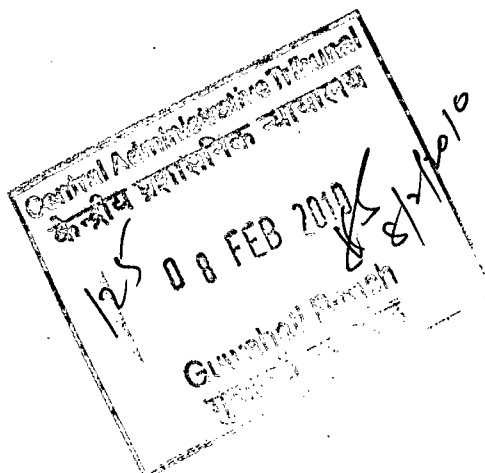 Central Administrative Tribunal
केन्द्रीय प्रशासनिक न्यायालय
125
08 FEB 2010
8/2/2010
Guwahati Bench